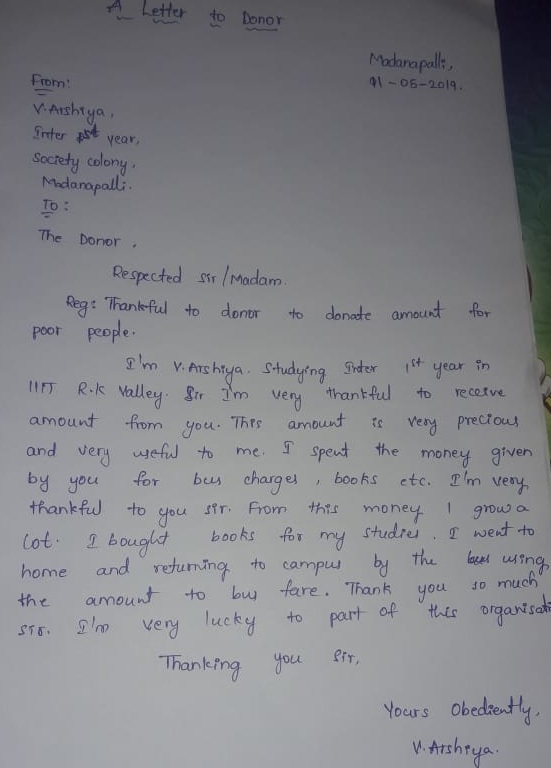 A Letter to Donor
Madanapalli,
01-05-2019.
From:
V. Arshiya,
Inter 1st year,
Society colony,
Madanapalli.
To:
The Donor,
Respected Sir/Madam.
Reg: Thankful to donor to donate amount for
poor people.
I'm V. Arshiya. Studying Inter 1st year in
IIIT R.K Valley. Sir I'm very thankful to receive
amount from you. This amount is very precious
and very useful to me. I spent the money given
by you for bus charges, books etc. I'm very
thankful to you sir. From this money I grow a
lot. I bought books for my studies. I went to
home and returning to campus by the using
the amount to bus fare. Thank you so much
sir. I'm very lucky to part of this
Thanking you Sir,
Yours Obediently,
V. Arshiya.